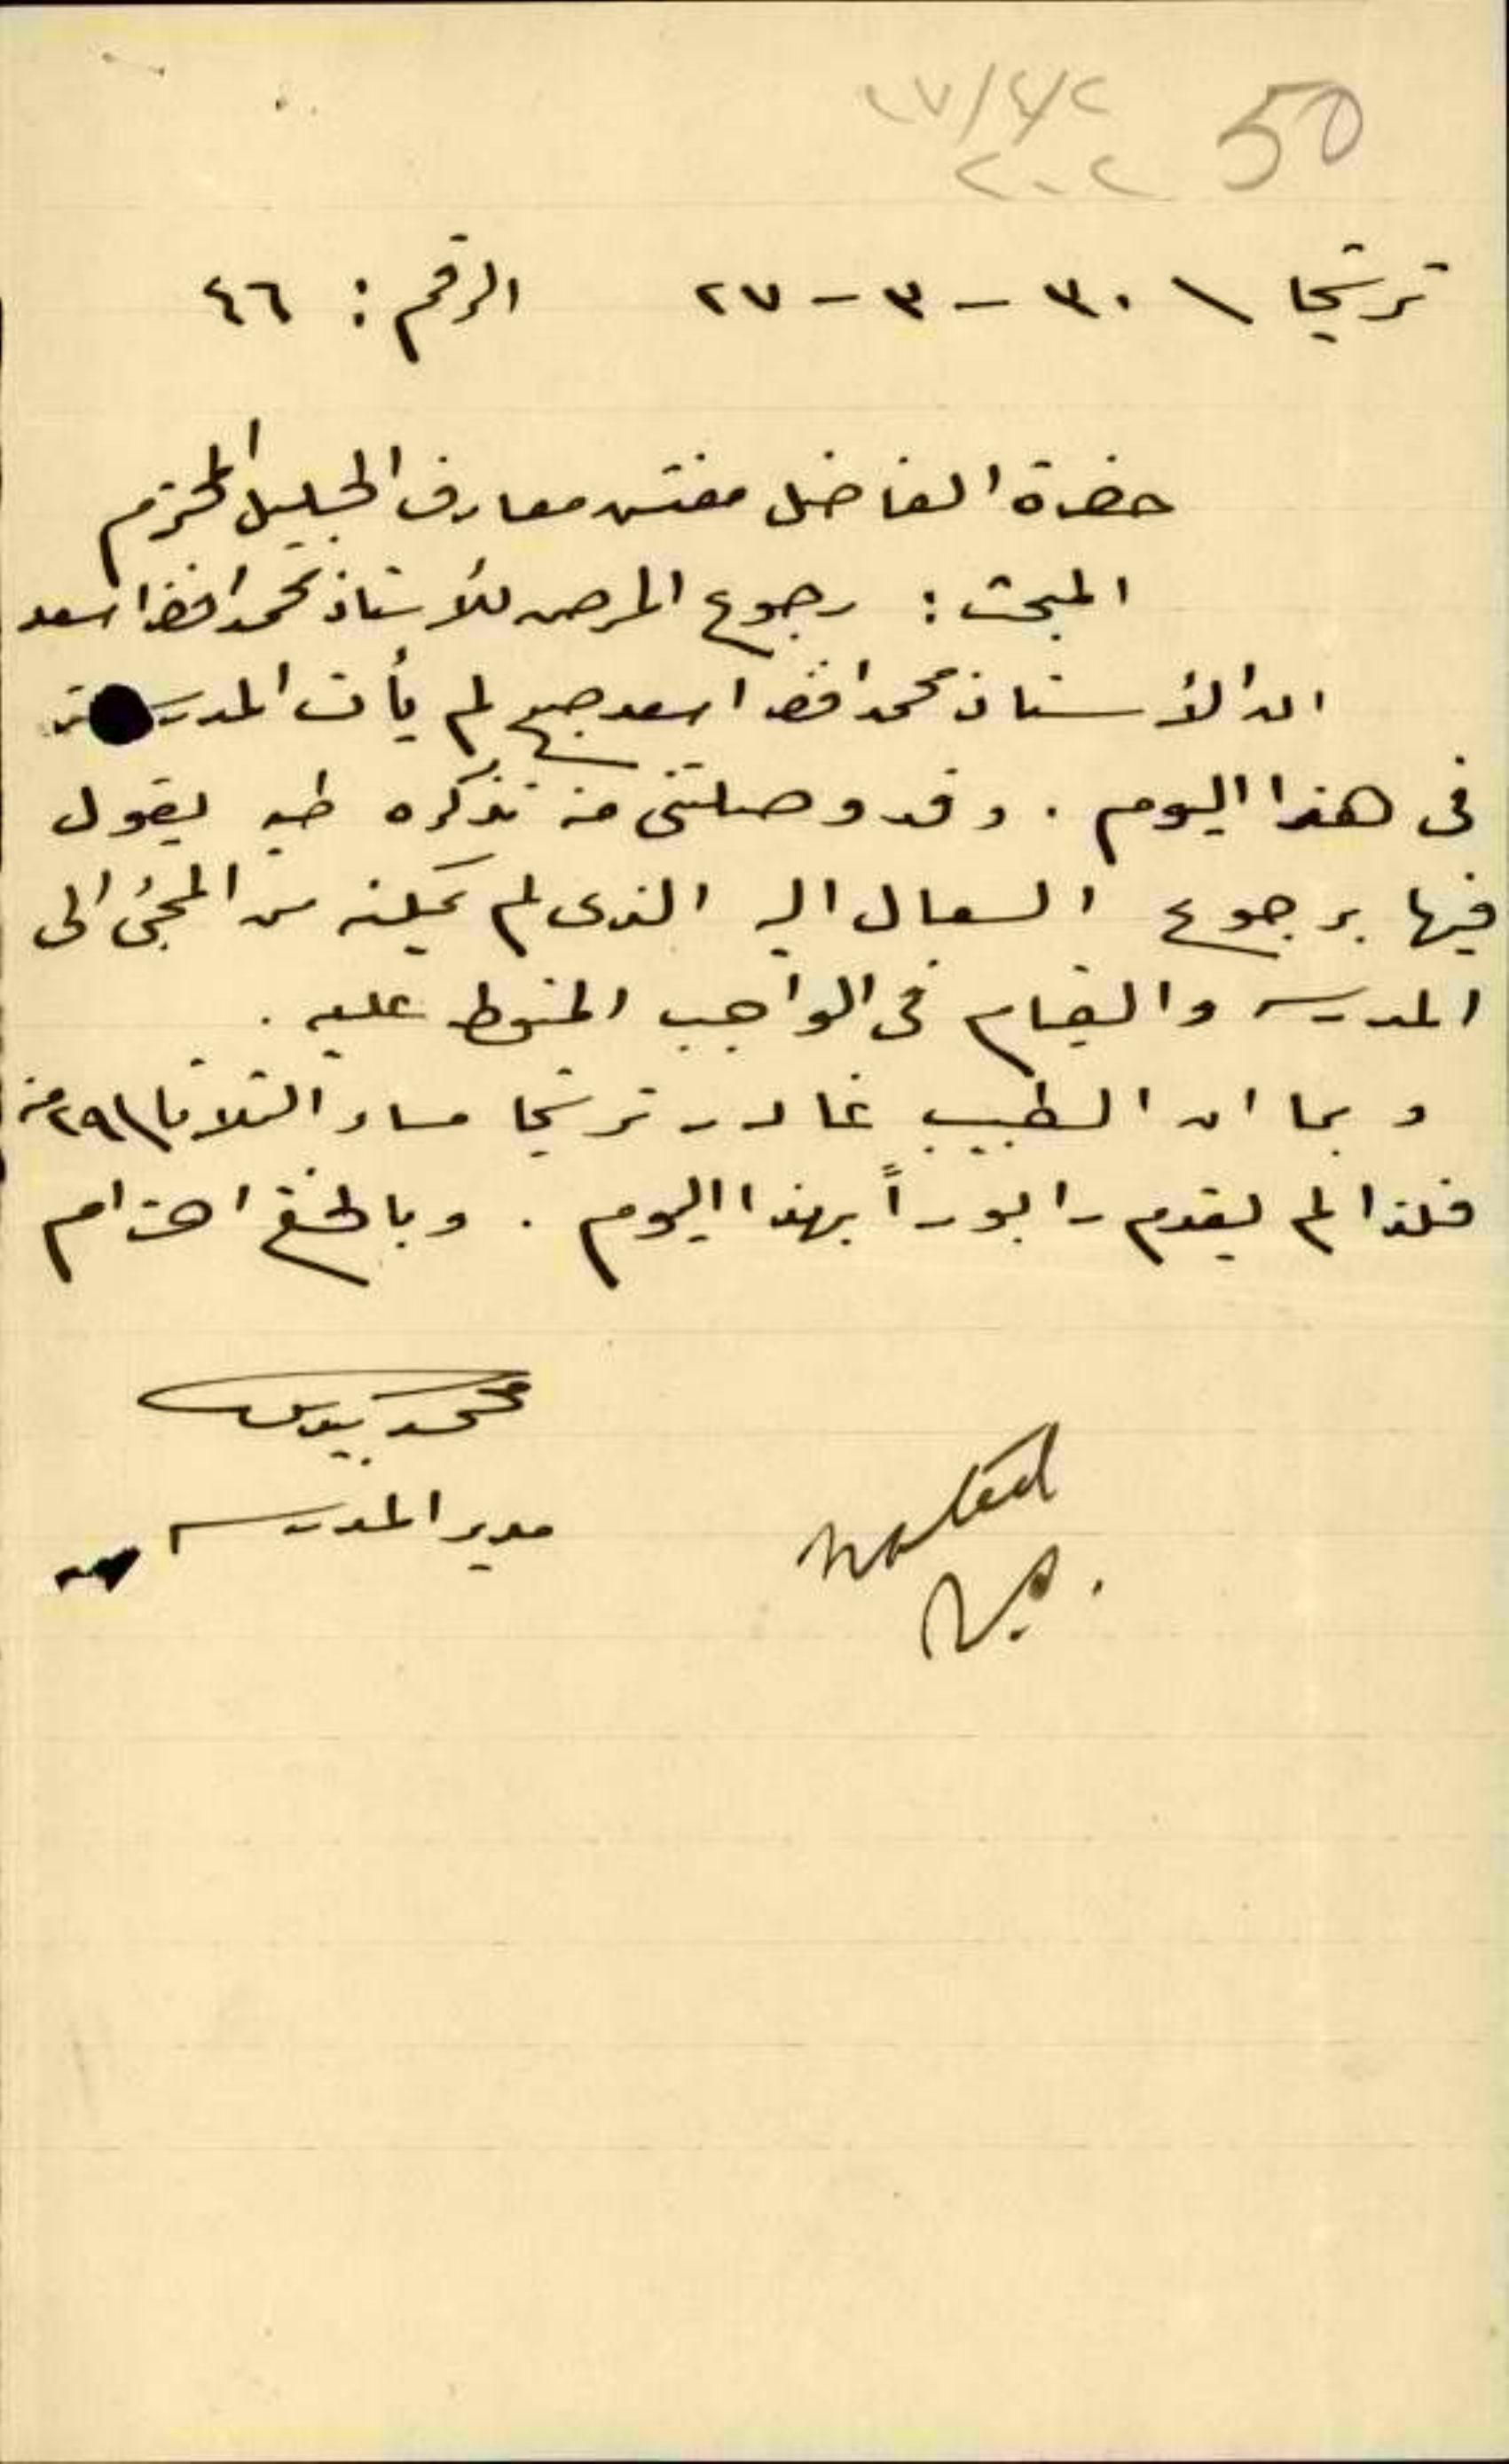 ٢٧/٤/٢ 50
٢٠٢
ترشيحا \ ٣٠ - ٣ - ٢٧ الرقم : ٤٦
حضرة الفاضل مفتش معارف الجليل المحترم
المبحث : رجوع المرض للأستاذ محمد افندي اسعد
ان الأستاذ محمد افندي اسعد صبح لم يأت المدرسة
فى هذا اليوم . وقد وصلتنى منه تذكره طيه يقول
فيها برجوع السعال اليه الذى لم يمكنه من المجئ الى
المدرسه والقيام فى الواجب المنوط عليه .
وبما ان الطبيب غادر ترشيحا مساء الثلاثا \ ٢٩ منه
فلذا لم يقدم رابوراً بهذا اليوم . وبالختم احترام
محمد
مدير المدرسه
noted